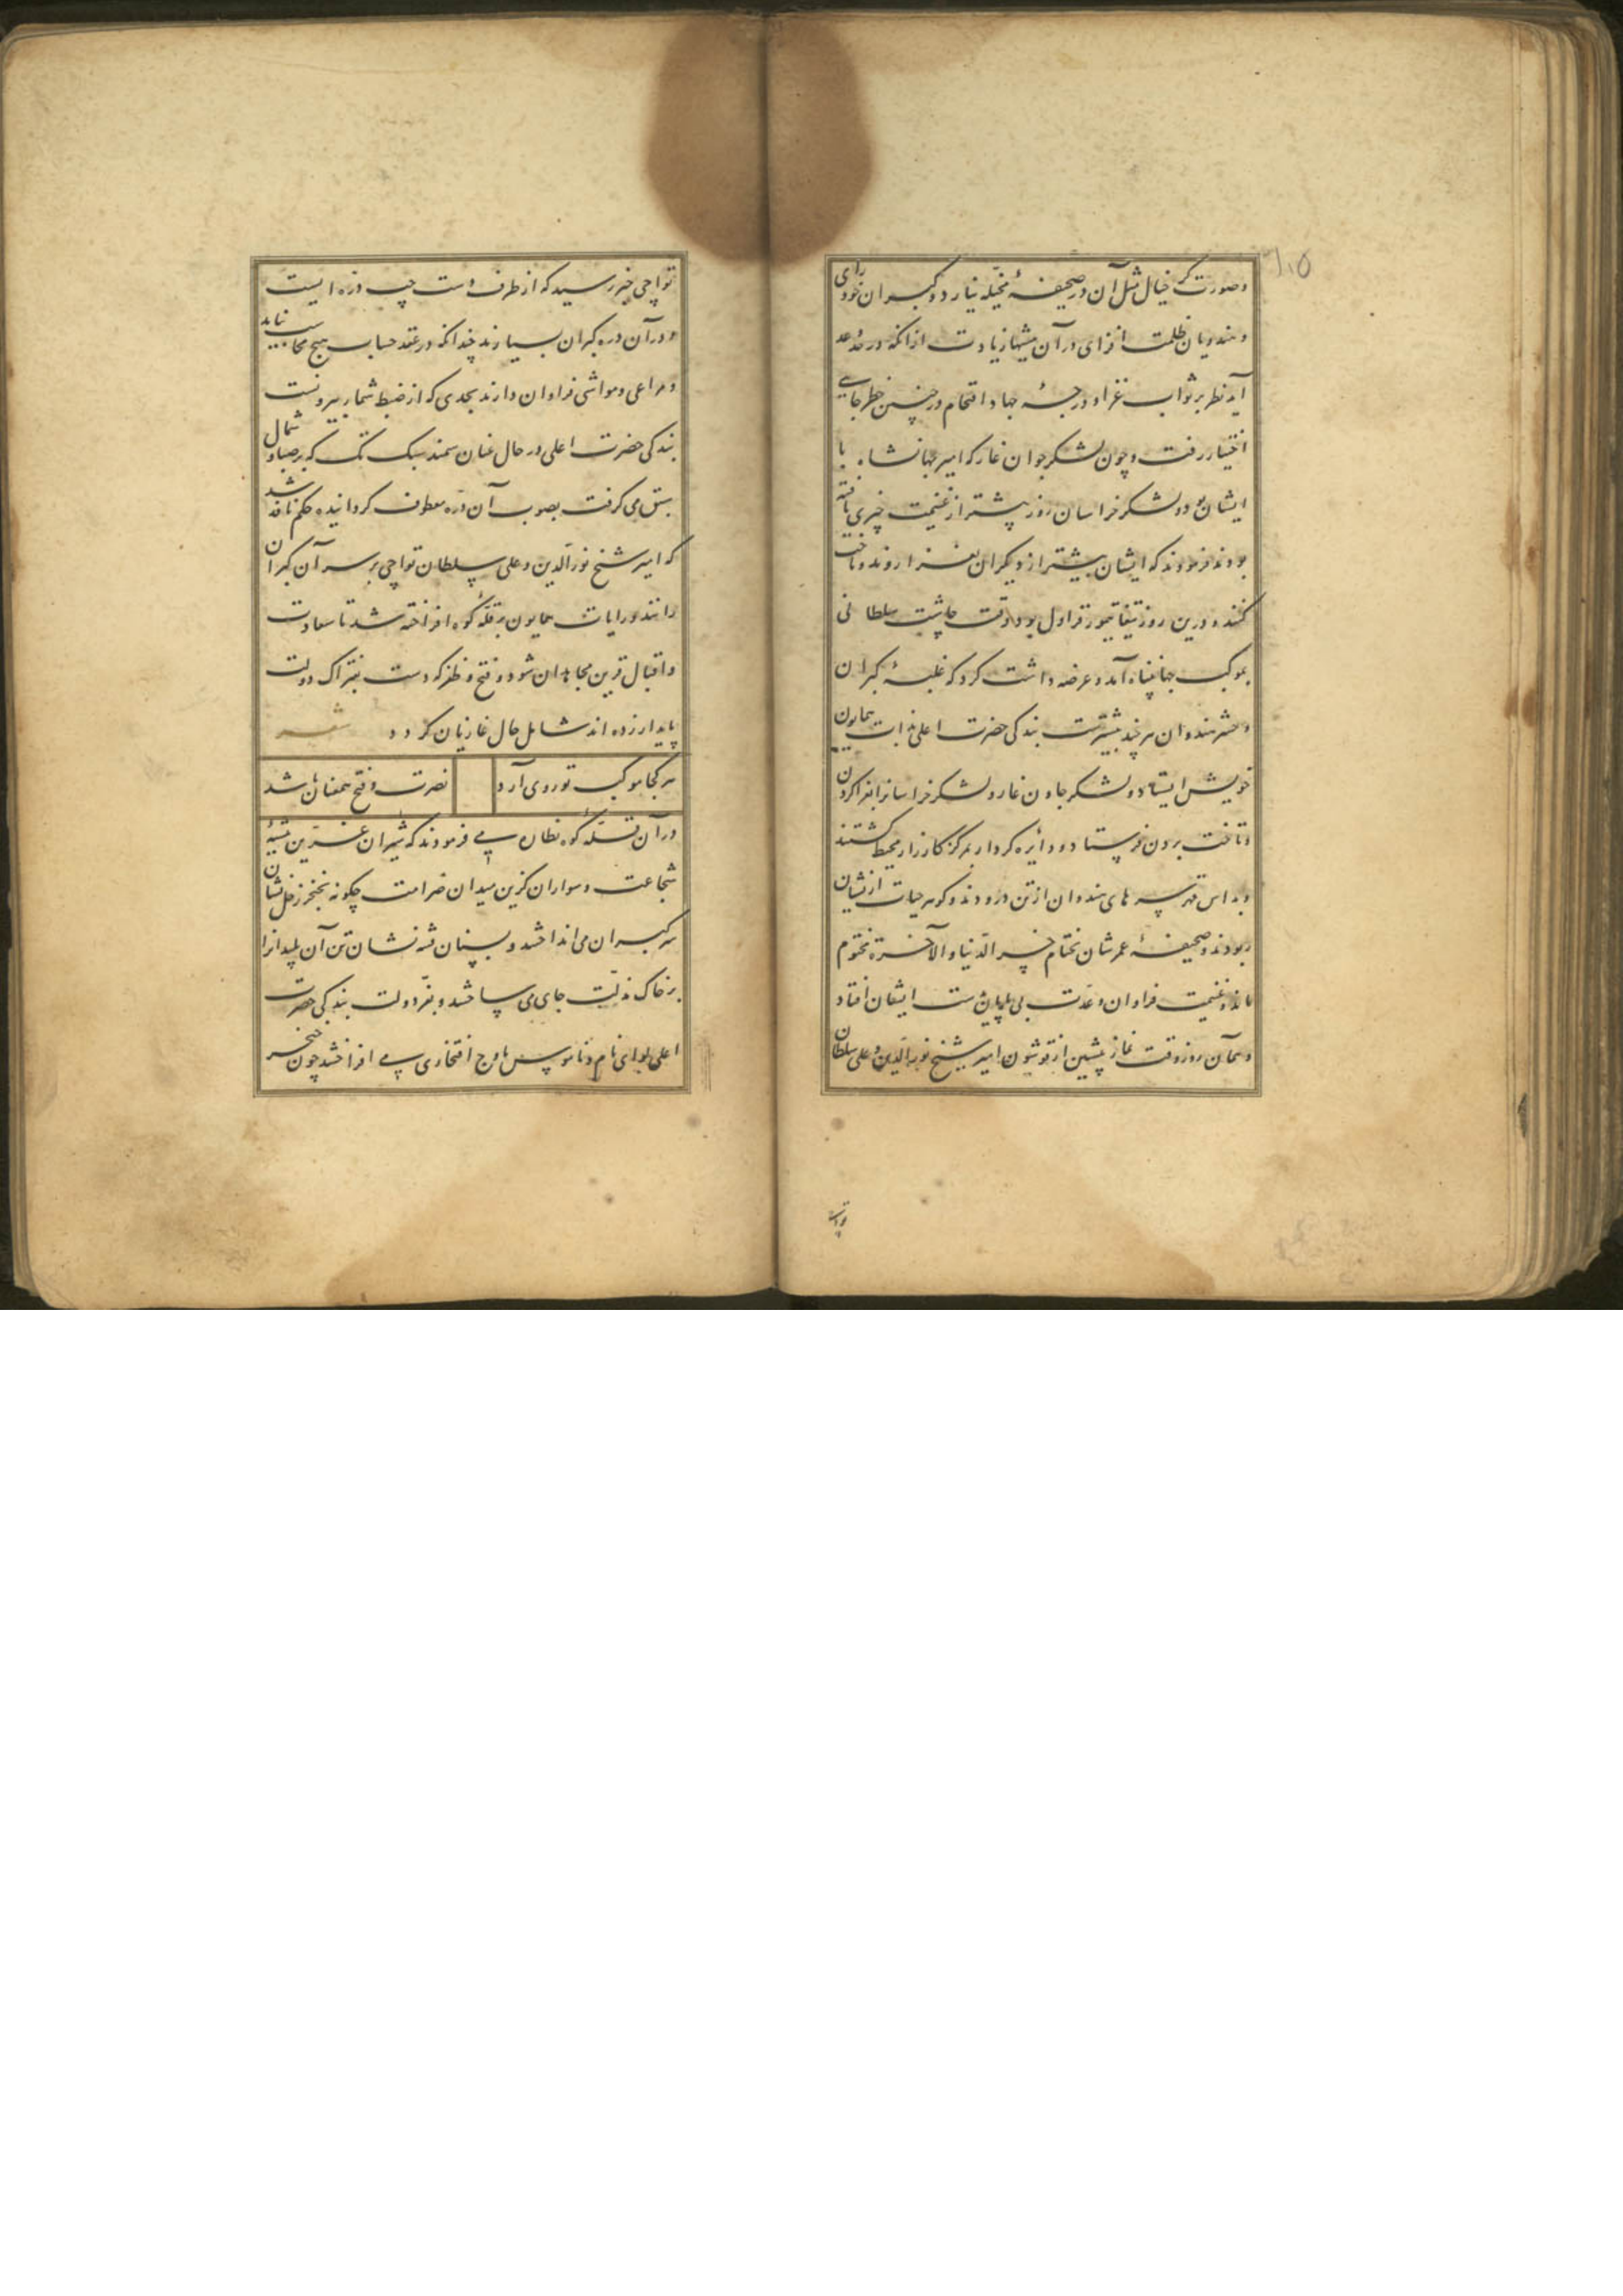 وصورت گر خیال مثل آن در صحیفهٔ مخیله نیارد و گبران خودرای
وهندویان ظلمت افزای در آن بیشها زیادت از آنکه در حدّ عد
آید نظر بر ثواب غزا و درجهٔ جهاد اقتحام در چنین خطر جایی
اختیار رفت و چون لشکر جوان غار که امیر جهانشاه با
ایشان بود و لشکر خراسان روز پیشتر از غنیمت چیزی یافته
بودند فرمودند که ایشان بیشتر از دیگران بغزا روند و تاخت
کنند و درین روز تیفا تیمور قراول بود وقت چاشت سلطانی
بموکب جهانپناه آمد و عرضه داشت کرد که غلبهٔ گبران
وحشر هندوان هر چند بیشترست بندگی حضرت اعلی بذات همایون
خویش ایستاد و لشکر جاون غار و لشکر خراسانرا بغزا کردن
وتاخت بردن فرستاد و دایره کردار بمرکز کارزار محیط گشتند
وبداس قهر سرهای هندوان از تن درودند و گوهر حیات ازیشان
ربودند و صحیفهٔ عمرشان بختام خسر الدنیا والآخرة مختوم
ماند و غنیمت فراوان وعدت بی پایان بدست ایشان افتاد
وهم آن روز وقت نماز پیشین از قوشون امیر شیخ نور الدین و علی سلطان
تواچی
تواچی خبر رسید که از طرف دست چپ دره ایست
ودر آن دره گبران بسیارند چندانکه در عقد حساب هیچ محاسب نیاید
ومراعی ومواشی فراوان دارند بحدی که از ضبط شمار بیرونست
بندگی حضرت اعلی در حال عنان سمند سبک تک که بر صبا و شمال
سبق می گرفت بصوب آن دره معطوف گردانیده حکم نافذ شد
که امیر شیخ نور الدین و علی سلطان تواچی بر سر آن گبران
رانند و رایات همایون بر قلهٔ کوه افراخته شد تا سعادت
واقبال قرین مجاهدان شود و فتح و ظفر که دست بفتراک دولت
پایدار زده اند شامل حال غازیان گردد شعر
هر کجا موکب تو روی آرد نصرت و فتح همعنان باشد
در آن قلهٔ کوه نظاره می فرمودند که شیران عرین بیشهٔ
شجاعت وسواران گزین میدان صرامت چگونه بخنجر زحل نشان
سر گبران می انداختند و بسنان نشان تن آن پلیدانرا
بر خاک مذلت جای می ساختند و بفرّ دولت بندگی حضرت
اعلی لوای نام و ناموس باوج افتخار می افراختند چون خنجر